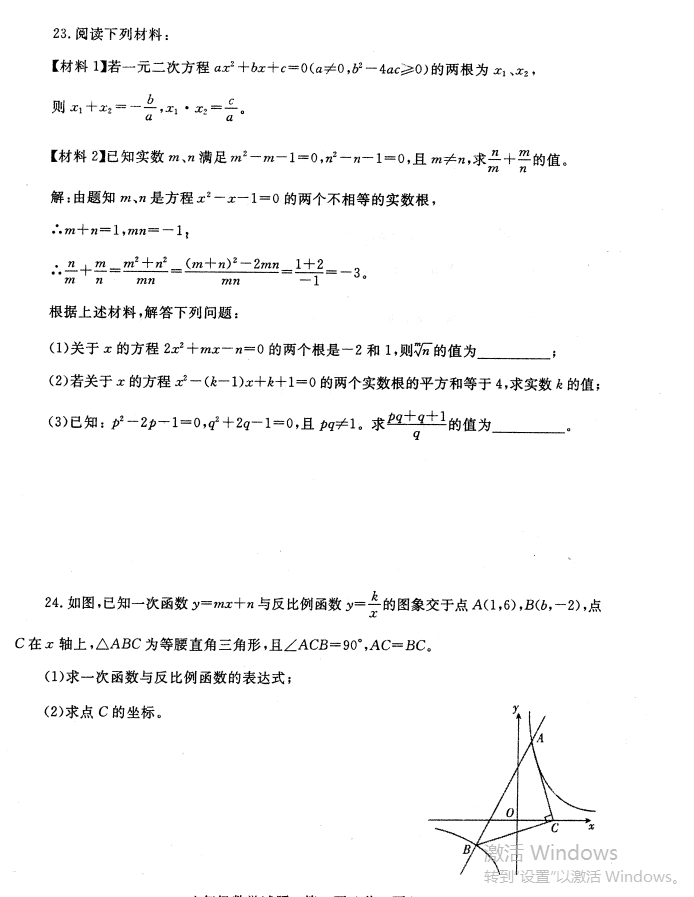 23.阅读下列材料:
【材料1】若一元二次方程 ax²+bx+c=0(a≠0,b²-4ac≥0)的两根为 x₁、x₂,
则 x₁+x₂=-b/a,x₁·x₂=c/a。
【材料2】已知实数 m、n 满足 m²-m-1=0,n²-n-1=0,且 m≠n,求 n/m+m/n 的值。
解:由题知 m、n 是方程 x²-x-1=0 的两个不相等的实数根,
∴m+n=1,mn=-1;
∴n/m+m/n=(m²+n²)/mn=((m+n)²-2mn)/mn=(1+2)/(-1)=-3。
根据上述材料,解答下列问题:
(1)关于 x 的方程 2x²+mx-n=0 的两个根是-2 和 1,则 ᵐ√n 的值为________;
(2)若关于 x 的方程 x²-(k-1)x+k+1=0 的两个实数根的平方和等于 4,求实数 k 的值;
(3)已知:p²-2p-1=0,q²+2q-1=0,且 pq≠1。求 (pq+q+1)/q 的值为________。
24.如图,已知一次函数 y=mx+n 与反比例函数 y=k/x 的图象交于点 A(1,6),B(b,-2),点
C 在 x 轴上,△ABC 为等腰直角三角形,且∠ACB=90°,AC=BC。
(1)求一次函数与反比例函数的表达式;
(2)求点 C 的坐标。
y
A
O
C
x
B
激活 Windows
转到"设置"以激活 Windows。